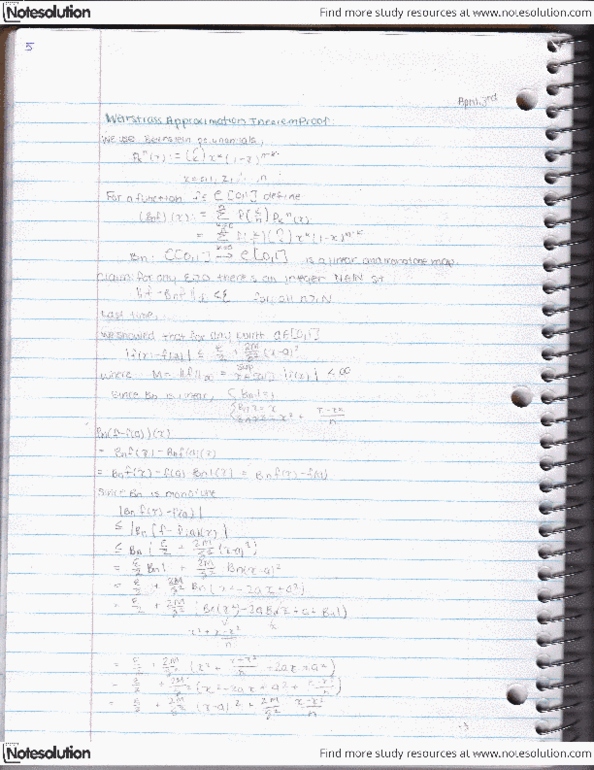 Notesolution
Find more study resources at www.notesolution.com
5
April 3rd
Weirstrass Approximation Theorem Proof:
We use Bernstein polynomials,
P_k^n(x) := (n k) x^k (1-x)^{n-k}
For a function f ∈ C[0,1] define
(Bnf)(x) := Σ_{k=0}^n f(k/n) P_k^n(x)
= Σ_{k=0}^n f(k/n) (n k) x^k (1-x)^{n-k}
Bn: C[0,1] → C[0,1] is a linear and monotone map
Claim: for any ε>0 there's an integer N∈ℕ st
‖f - Bnf‖_∞ < ε for all n≥N
Last time,
we showed that for any point a∈[0,1]
|f(x) - f(a)| ≤ ε/2 + 2M/δ² (x-a)²
where M = ‖f‖_∞ = sup x∈[0,1] |f(x)| < ∞
Since Bn is linear, { Bn1=1
Bnx=x
Bnx²=x² + x-x²/n
Bn(f-f(a))(x)
= Bnf(x) - Bnf(a)(x)
= Bnf(x) - f(a) Bn1(x) = Bnf(x) - f(a)
Since Bn is monotone
|Bnf(x) - f(a)|
≤ |Bn[f-f(a)](x)|
≤ Bn(ε/2 + 2M/δ² (x-a)²)
= ε/2 Bn1 + 2M/δ² Bn(x-a)²
= ε/2 + 2M/δ² Bn(x²-2ax+a²)
= ε/2 + 2M/δ² (Bn(x²) - 2aBnx + a²Bn1)
x² + x-x²/n
= ε/2 + 2M/δ² (x² + x-x²/n - 2ax + a²)
= ε/2 + 2M/δ² (x² - 2ax + a² + x-x²/n)
= ε/2 + 2M/δ² (x-a)² + 2M/δ² x-x²/n
Notesolution
Find more study resources at www.notesolution.com